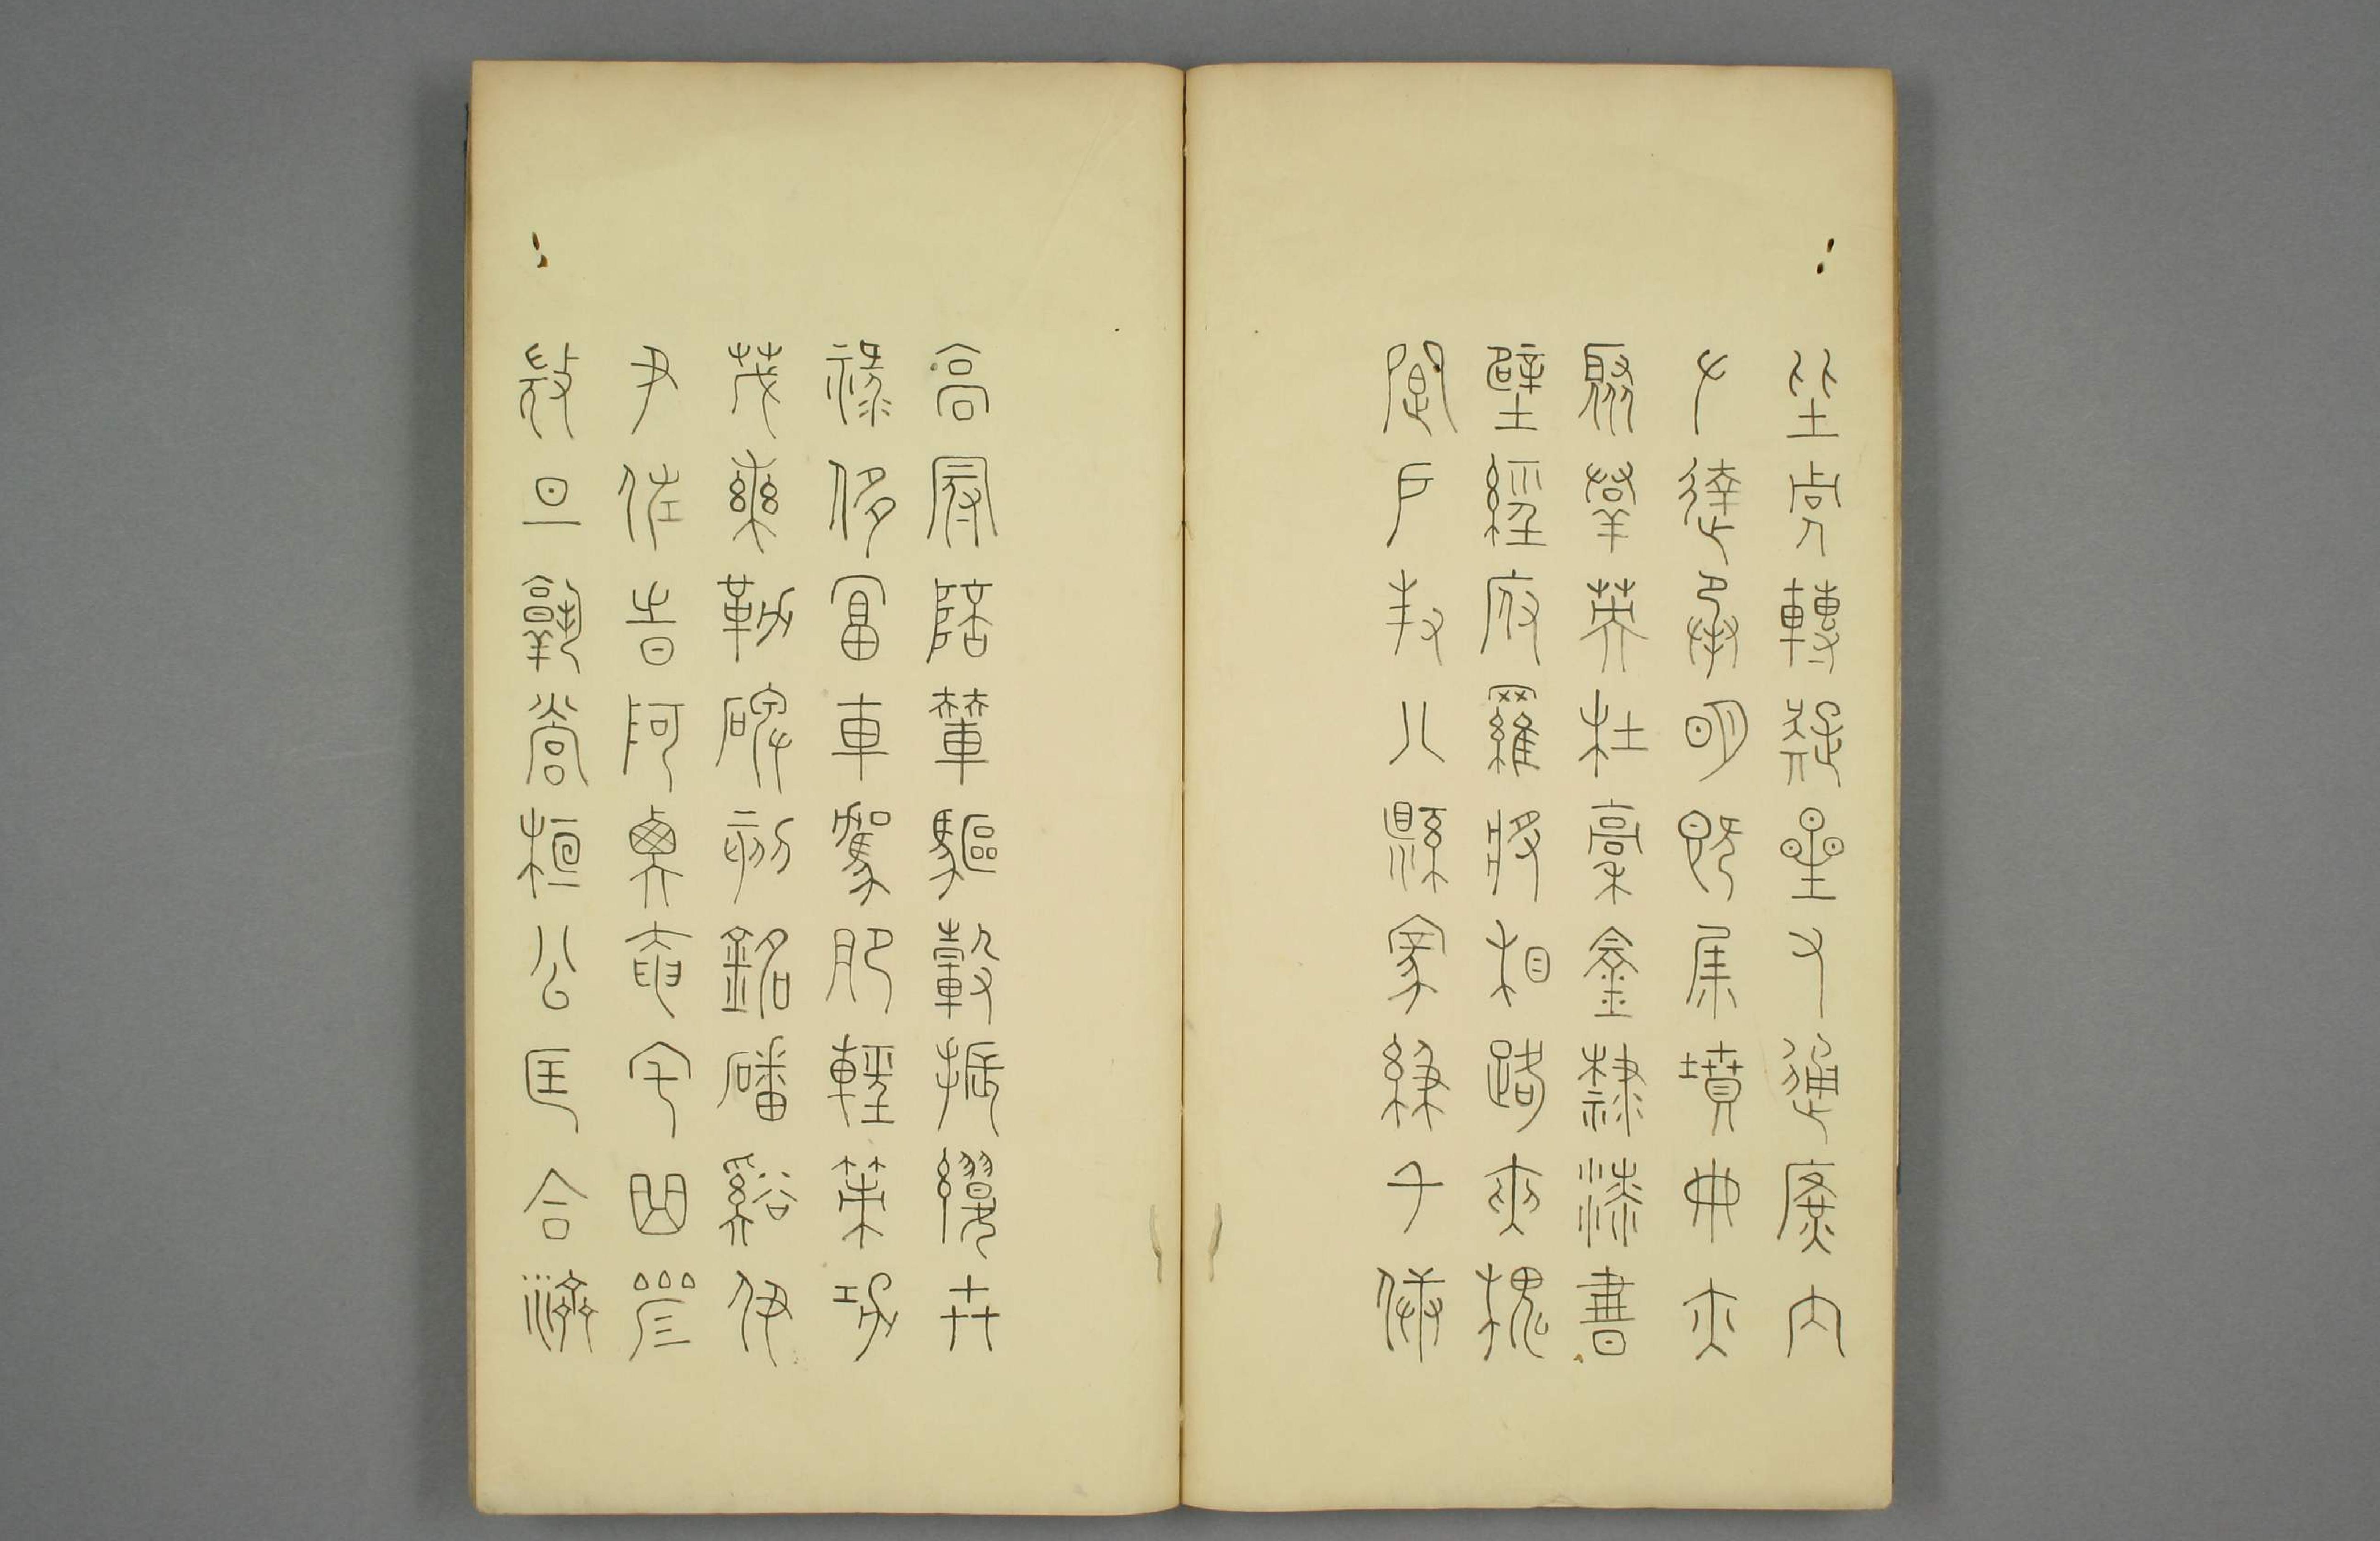 陛弁轉疑星右通廣內
左達承明既集墳典亦
聚群英杜稾鍾隸漆書
壁經府羅將相路夾槐
卿戶封八縣家給千兵
高冠陪輦驅轂振纓世
祿侈富車駕肥輕策功
茂實勒碑刻銘磻谿伊
尹佐時阿衡奄宅曲阜
微旦孰營桓公匡合濟